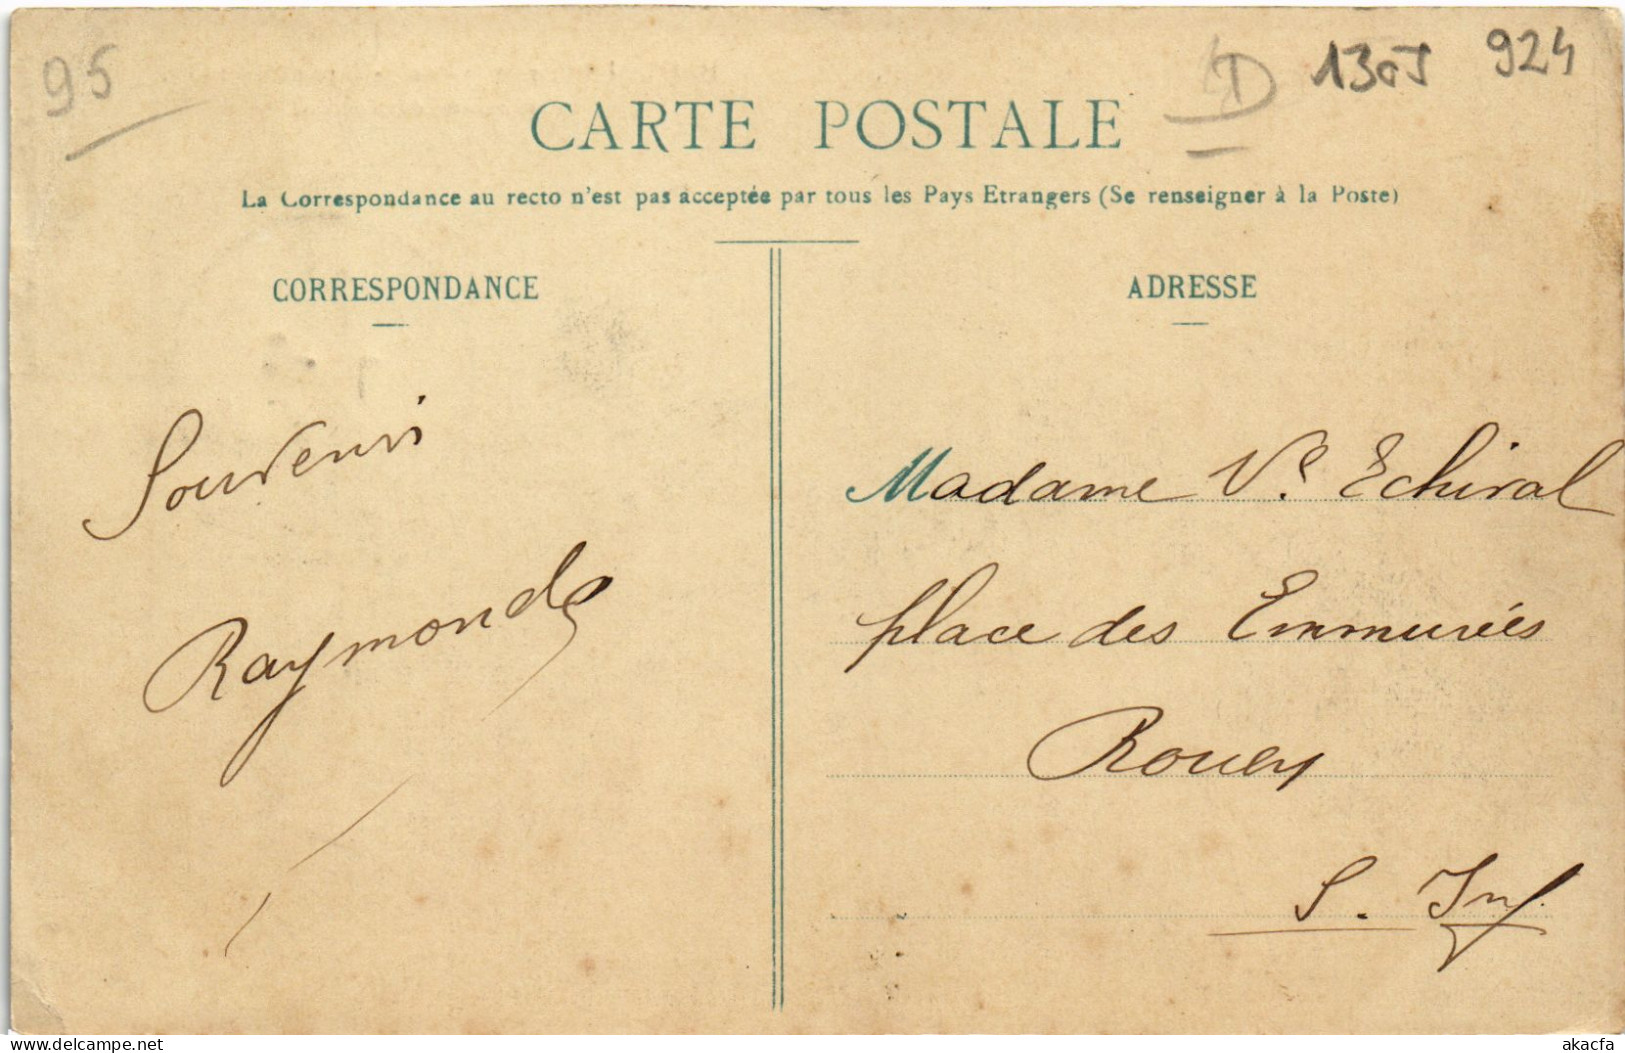 95
1305 924
CARTE POSTALE
La Correspondance au recto n'est pas acceptée par tous les Pays Etrangers (Se renseigner à la Poste)
CORRESPONDANCE
Souvenir
Raymonde
ADRESSE
Madame Ve Echival
place des Emmurées
Rouen
S. Inf.
akacfa